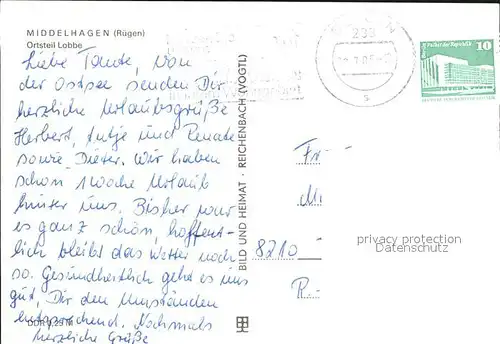 MIDDELHAGEN (Rügen)
Ortsteil Lobbe
Liebe Tante, Von
der Ostsee senden Dir
herzliche Urlaubsgrüße
Herbert, Antje und Renate
sowie Dieter. Wir haben
schon 1 Woche Urlaub
hinter uns. Bisher war
es ganz schön, hoffent-
lich bleibt das Wetter noch
so. Gesundheitlich geht es uns
gut, Dir den Umständen
entsprechend. Nochmals
herzliche Grüße
DDR
BILD UND HEIMAT · REICHENBACH (VOGTL)
233
s
10
Fr
M
8210
R
privacy protection
Datenschutz